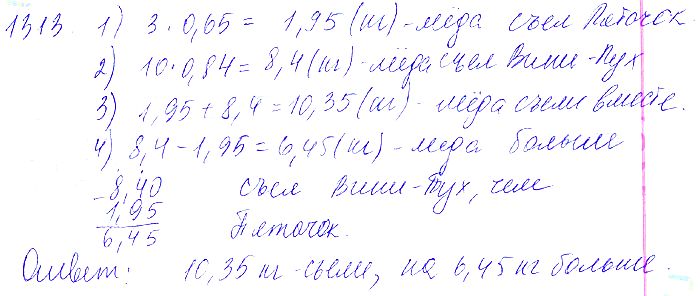 1313. 1) 3 · 0,65 = 1,95 (кг) - мёда съел Пяточок.
2) 10 · 0,84 = 8,4 (кг) - мёда съел Вини-Пух
3) 1,95 + 8,4 = 10,35 (кг) - мёда съели вместе.
4) 8,4 - 1,95 = 6,45 (кг) - меда больше
съел Вини-Пух, чем
Пяточок.
- 8,40
1,95
6,45
Ответ: 10,35 кг съели, на 6,45 кг больше.